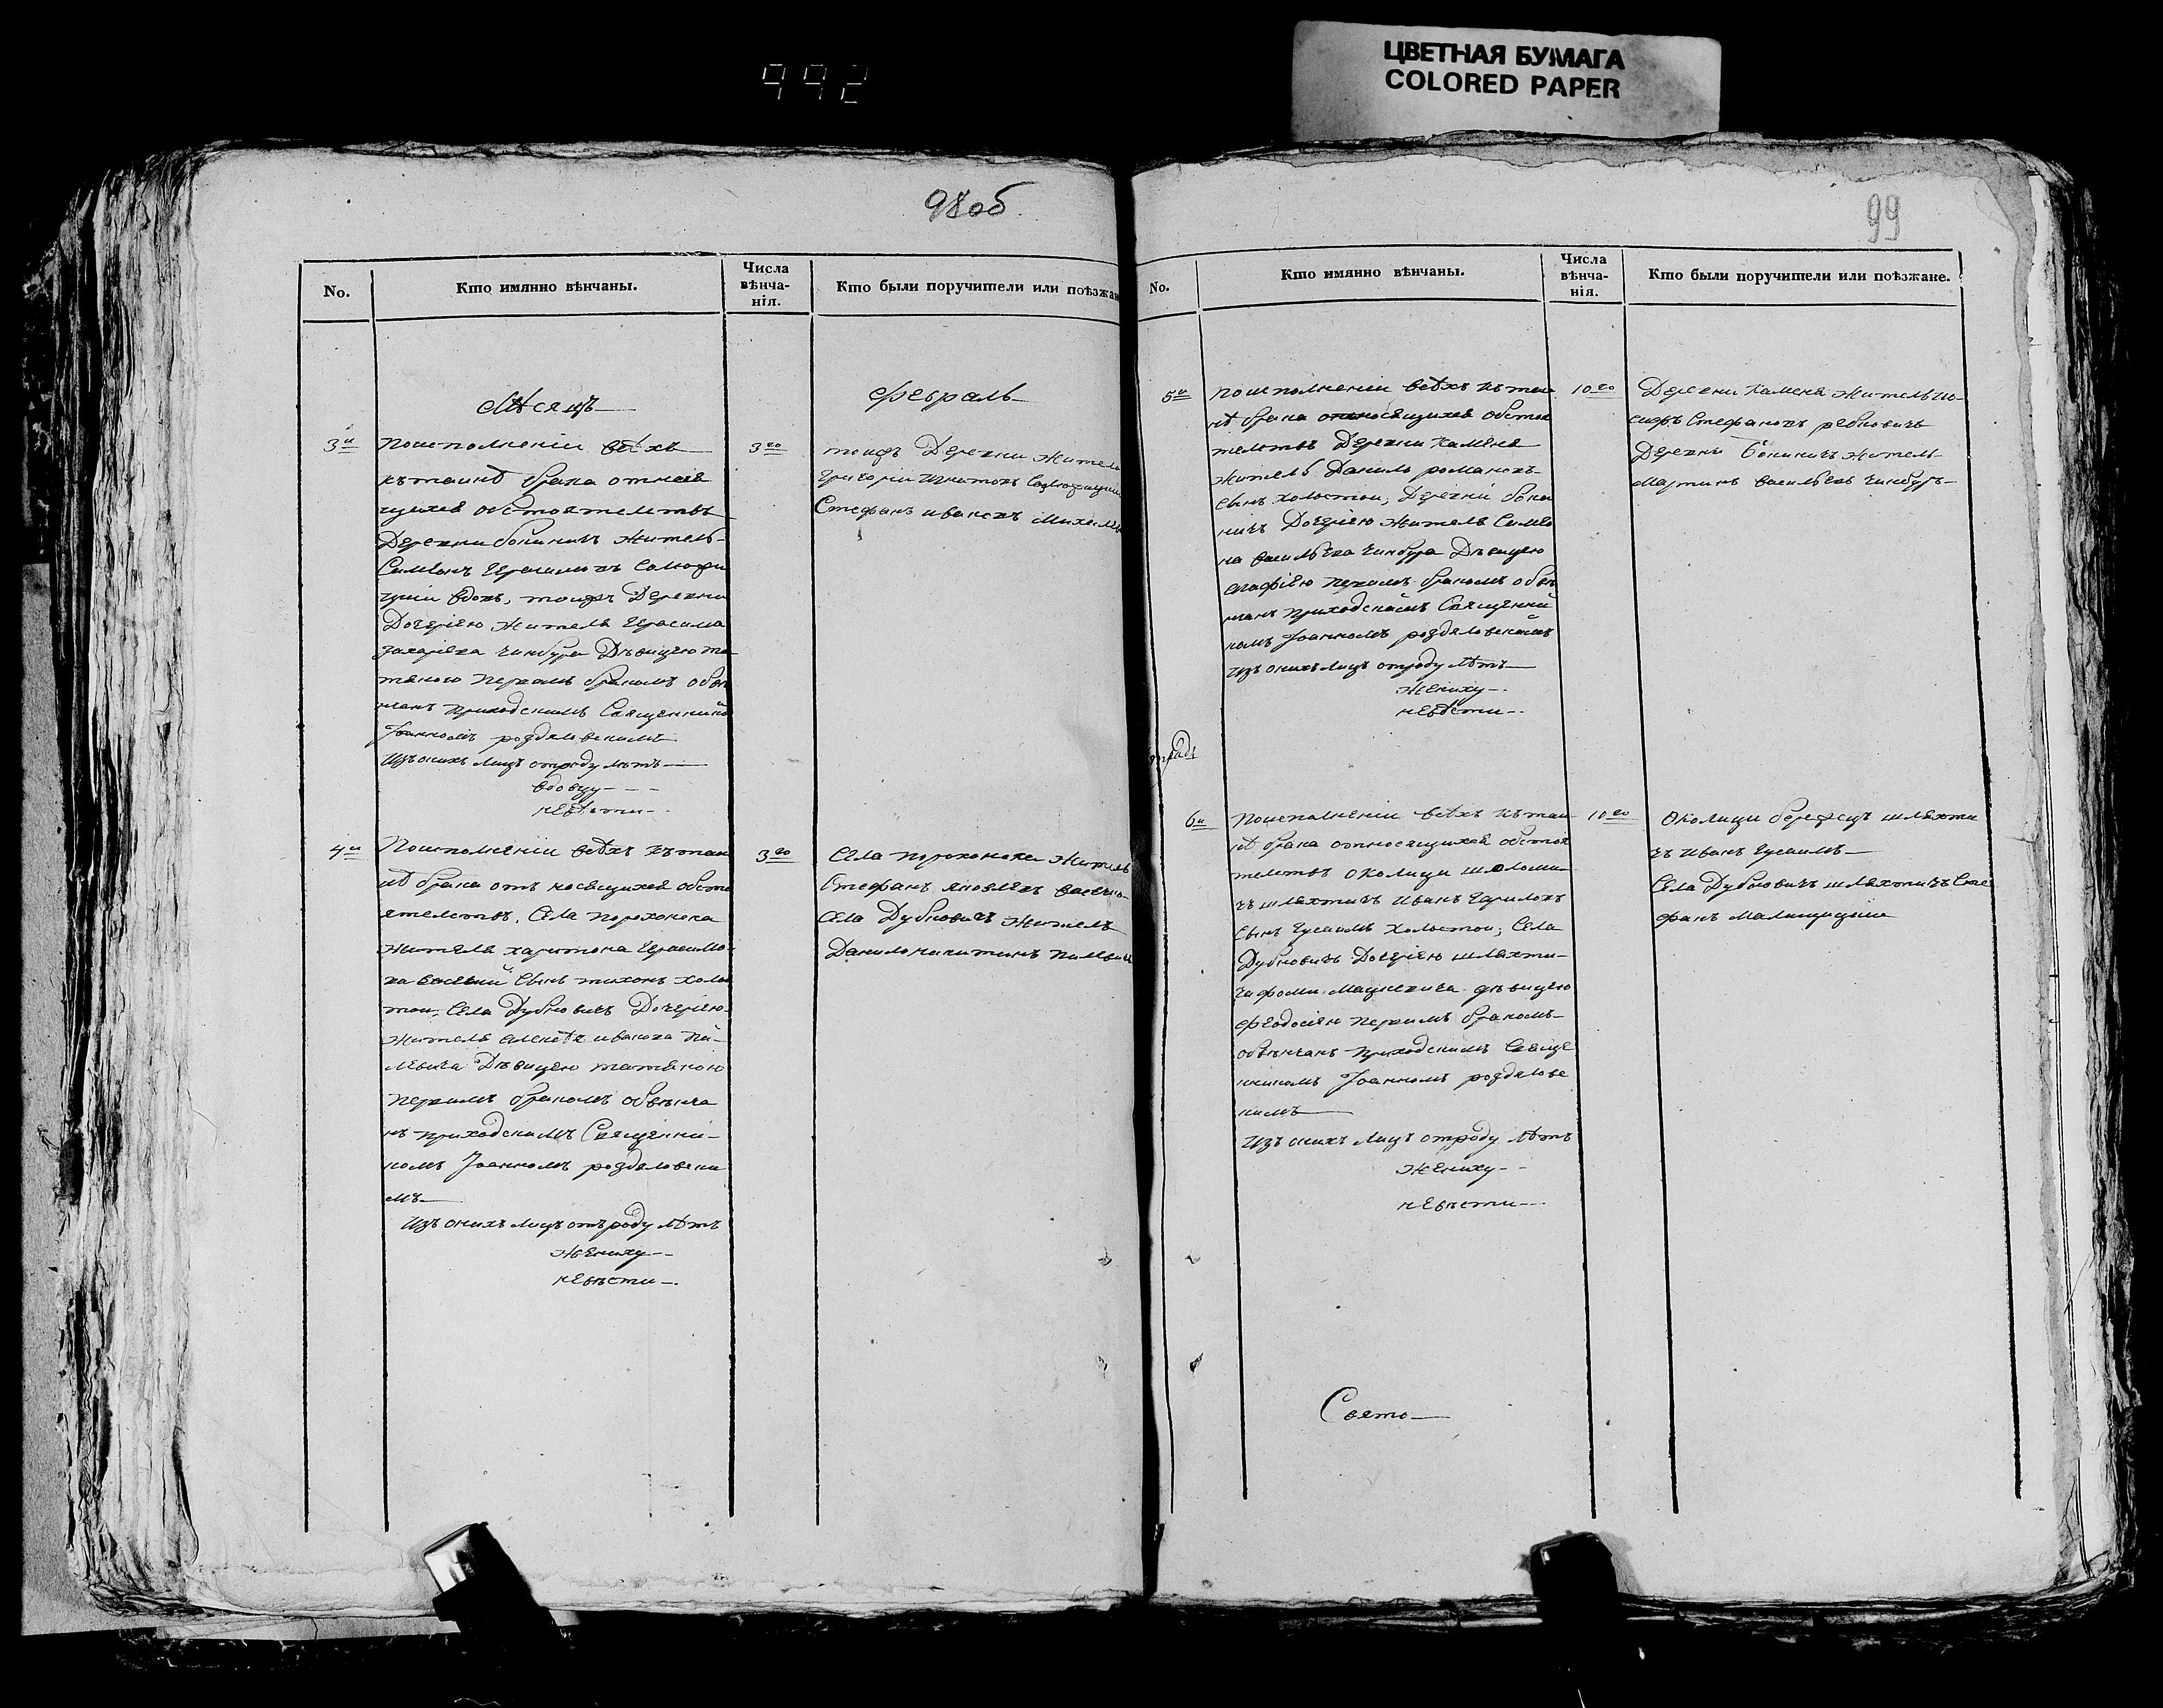 992
ЦВЕТНАЯ БУМАГА
COLORED PAPER
98об.
No.
Кто имянно вѣнчаны.
Числа вѣнча-
нія.
Кто были поручители или поѣзжан
Мѣсяцъ
Февраль
3й
Поисполненіи всѣхъ
къ таинѣ брака относя
щихся обстоятелствъ
Деревни Бокиничъ Житель
Симеонъ Герасимовъ
вдовъ, тоижъ Деревни
Дочерію Жителя Герасима
Захарiева Чинбура Дѣвицею та
тяною первымъ бракомъ обвѣ
нчанъ приходскимъ Священнико
Іоанномъ роздяловскимъ
Изъ онихъ лицъ отроду лѣтъ
вдовцу - - -
невѣсти - -
3го
тоижъ Деревни Жители
Григорій Игнатовъ
Стефанъ ивановъ
4й
Поисполненіи всѣхъ къ таи
нѣ брака отъ носящихся обсто
ятелствъ, Села Порохонска
Жителя харитона Герасимо
ва сынъ тихонъ холос
тои, Села Дубновичъ Дочерію
Жителя алексѣя иванова Пи-
левича Дѣвицею татяною
первимъ бракомъ обвѣнча
нъ приходскимъ Священни-
комъ Іоанномъ роздяловски
мъ
Изъ онихъ лицъ отъ роду лѣтъ
Жениху - -
невѣсти -.
3го
Села порохонска Житель
Стефанъ яковлевъ
Села Дубновичъ Житель
Данило никитинъ Пилевич
99
No.
Кто имянно вѣнчаны.
Числа
вѣнча-
нія.
Кто были поручители или поѣзжане.
5й
поисполненіи всѣхъ къ таи
нѣ брака относящихся обстоя
телствъ Деревни Каменя
Житель Данило романовъ
сынъ холостои, Деревни боки
ничъ Дочерію Жителя Симео
на василѣва Чинбура Дѣвицею
агафіею первимъ бракомъ обвѣ
нчанъ приходскимъ Священни
комъ Іоанномъ роздяловскимъ
изъ онихъ лицъ отроду лѣтъ
Жениху -.
невѣсти -.
10го
Деревни Каменя Житель іо-
сифъ Стефановъ
Деревни Бокиничъ Житель
Мартинъ василѣвъ Чинбуръ
6й
Поисполненіи всѣхъ къ таи
нѣ брака относящихся обстоя
телствъ околици шоломи-
чъ шляхтичъ Иванъ
сынъ холостои, Села
Дубновичъ Дочерію шляхти-
ча фоми дѣвицею
Феодосіею первимъ бракомъ
обвѣнчанъ приходскимъ Свяще
нникомъ Іоанномъ роздялове
кимъ
Изъ онихъ лицъ отроду лѣтъ
Жениху - -
невѣсти - -
10го
Околици шляхти
чъ Иванъ
Села Дубновичъ шляхтичъ Сте
фанъ
Свято